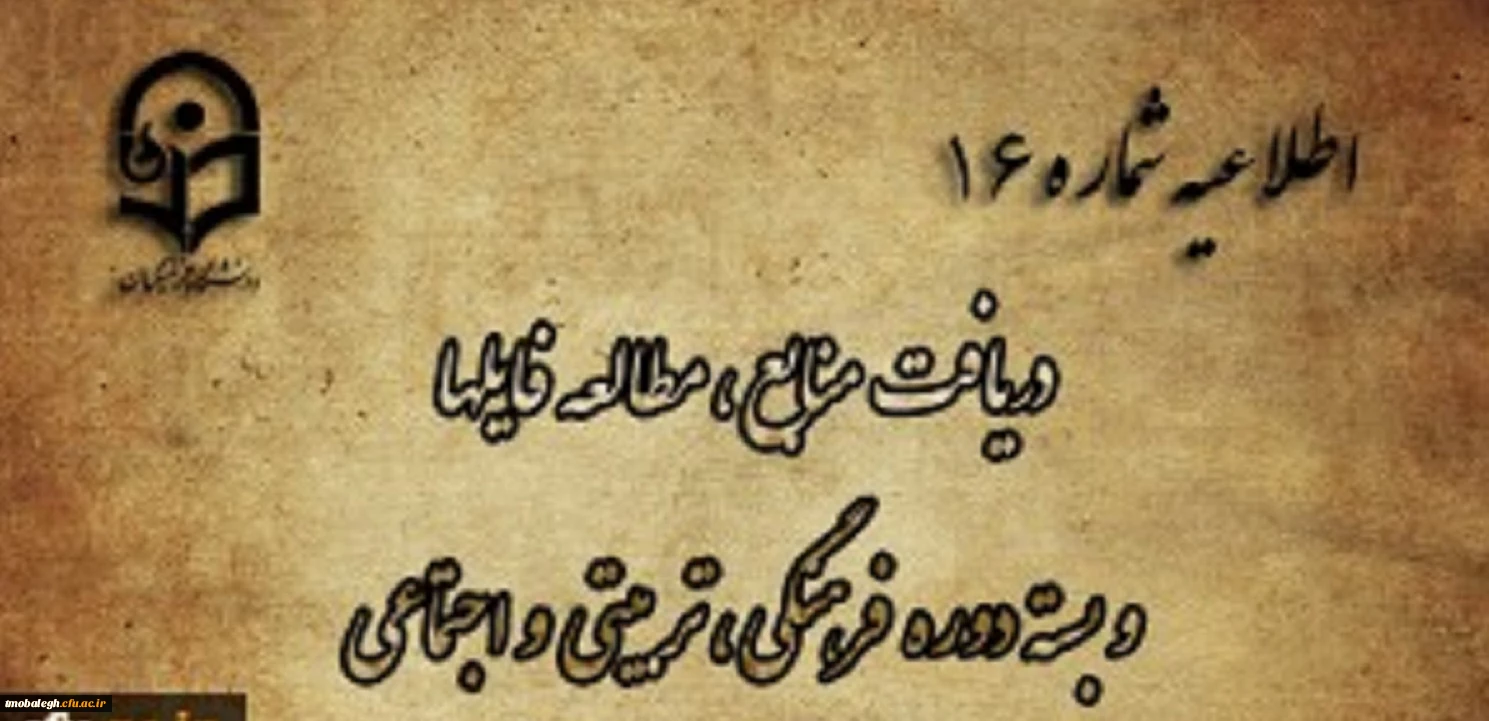 اطلاعیه شماره ۱۶
دانشگاه فرهنگیان
دریافت منابع، مطالعه فایلها
و بسته دوره فرهنگی، تربیتی و اجتماعی
tmobalegh.cfu.ac.ir